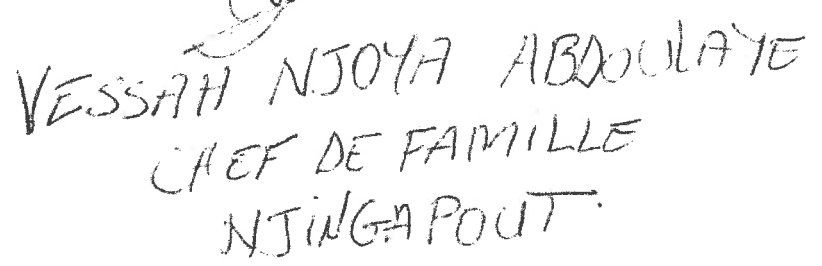 VESSAH NJOYA ABDOULAYE
CHEF DE FAMILLE
NJINGAPOUT.